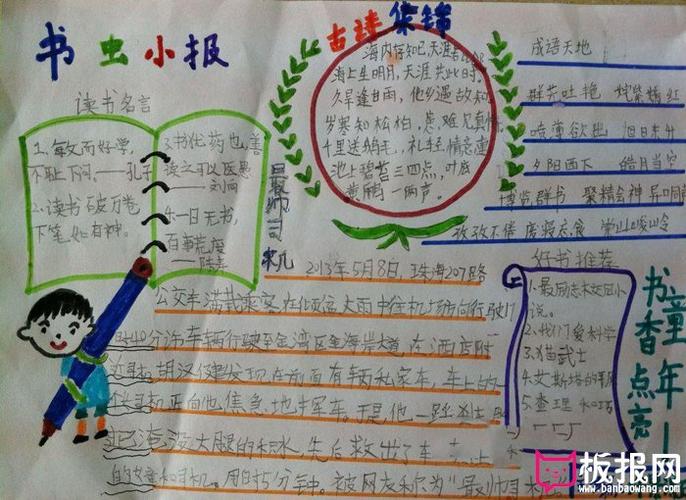 书虫小报
读书名言
1.敏而好学,
不耻下问。——孔子
2.读书破万卷,
下笔如有神。
3.书犹药也,善
读之可以医愚
——刘向
4.一日无书,
百事荒废
——陈寿
古诗集锦
海内存知己,天涯若比邻
海上生明月,天涯共此时。
久旱逢甘雨,他乡遇故知
岁寒知松柏,患难见真情
千里送鹅毛,礼轻情意重
池上碧苔三四点,叶底
黄鹂一两声。
成语天地
群芳吐艳 姹紫嫣红
喷薄欲出 旭日东升
夕阳西下 皓月当空
博览群书 聚精会神 异口同
孜孜不倦 废寝忘食 崇山峻岭
最帅司机
2013年5月8日,珠海207路
公交车满载乘客在倾盆大雨中往机场方向行驶17
时40分许车辆行驶至金湾区金海岸大道,在酒店附
近司机胡汉健发现在前面有辆私家车,车上的一
位司机正向他焦急地挥车,于是他一
大腿的积水,先后救出了车
司机。用时5分钟,被网友称为“最帅司机
好书推荐
1.最励志校园小
说。
2.我们爱科学
3.猫武士
4.艾斯塔的
5.查理和巧
书香点亮童年
板报网
www.banbaowang.com